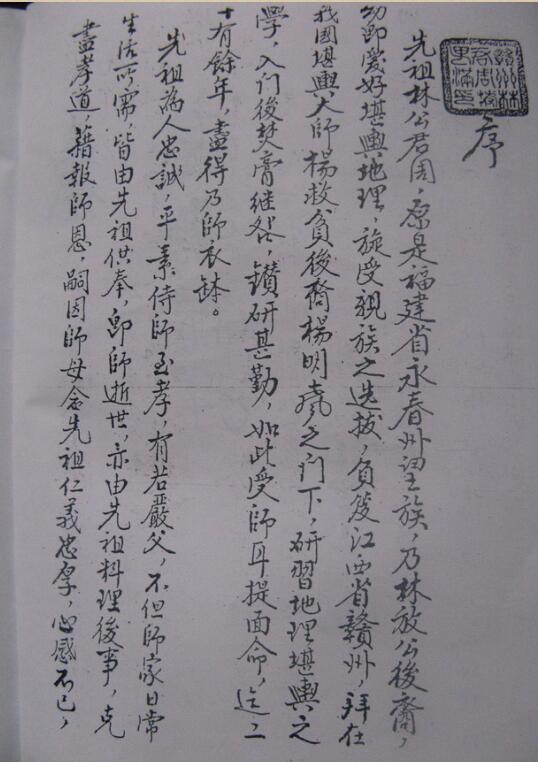 序
先祖林公君周，原是福建省永春州望族，乃林放公後裔，
幼即愛好堪輿地理，旋受親族之选拔，負笈江西省贛州，拜在
我國堪輿大師楊救貧後裔楊明 之門下，研習地理堪輿之
學，入门後焚膏继晷，鑽研甚勤，如此受師耳提面命，迄二
十有餘年，盡得乃師衣缽。
先祖為人忠誠，平素侍師至孝，有若嚴父，不但師家日常
生活所需，皆由先祖供奉，即師逝世，亦由先祖料理後事，克
盡孝道，藉報師恩，嗣因師母念先祖仁義忠厚，心感不已，